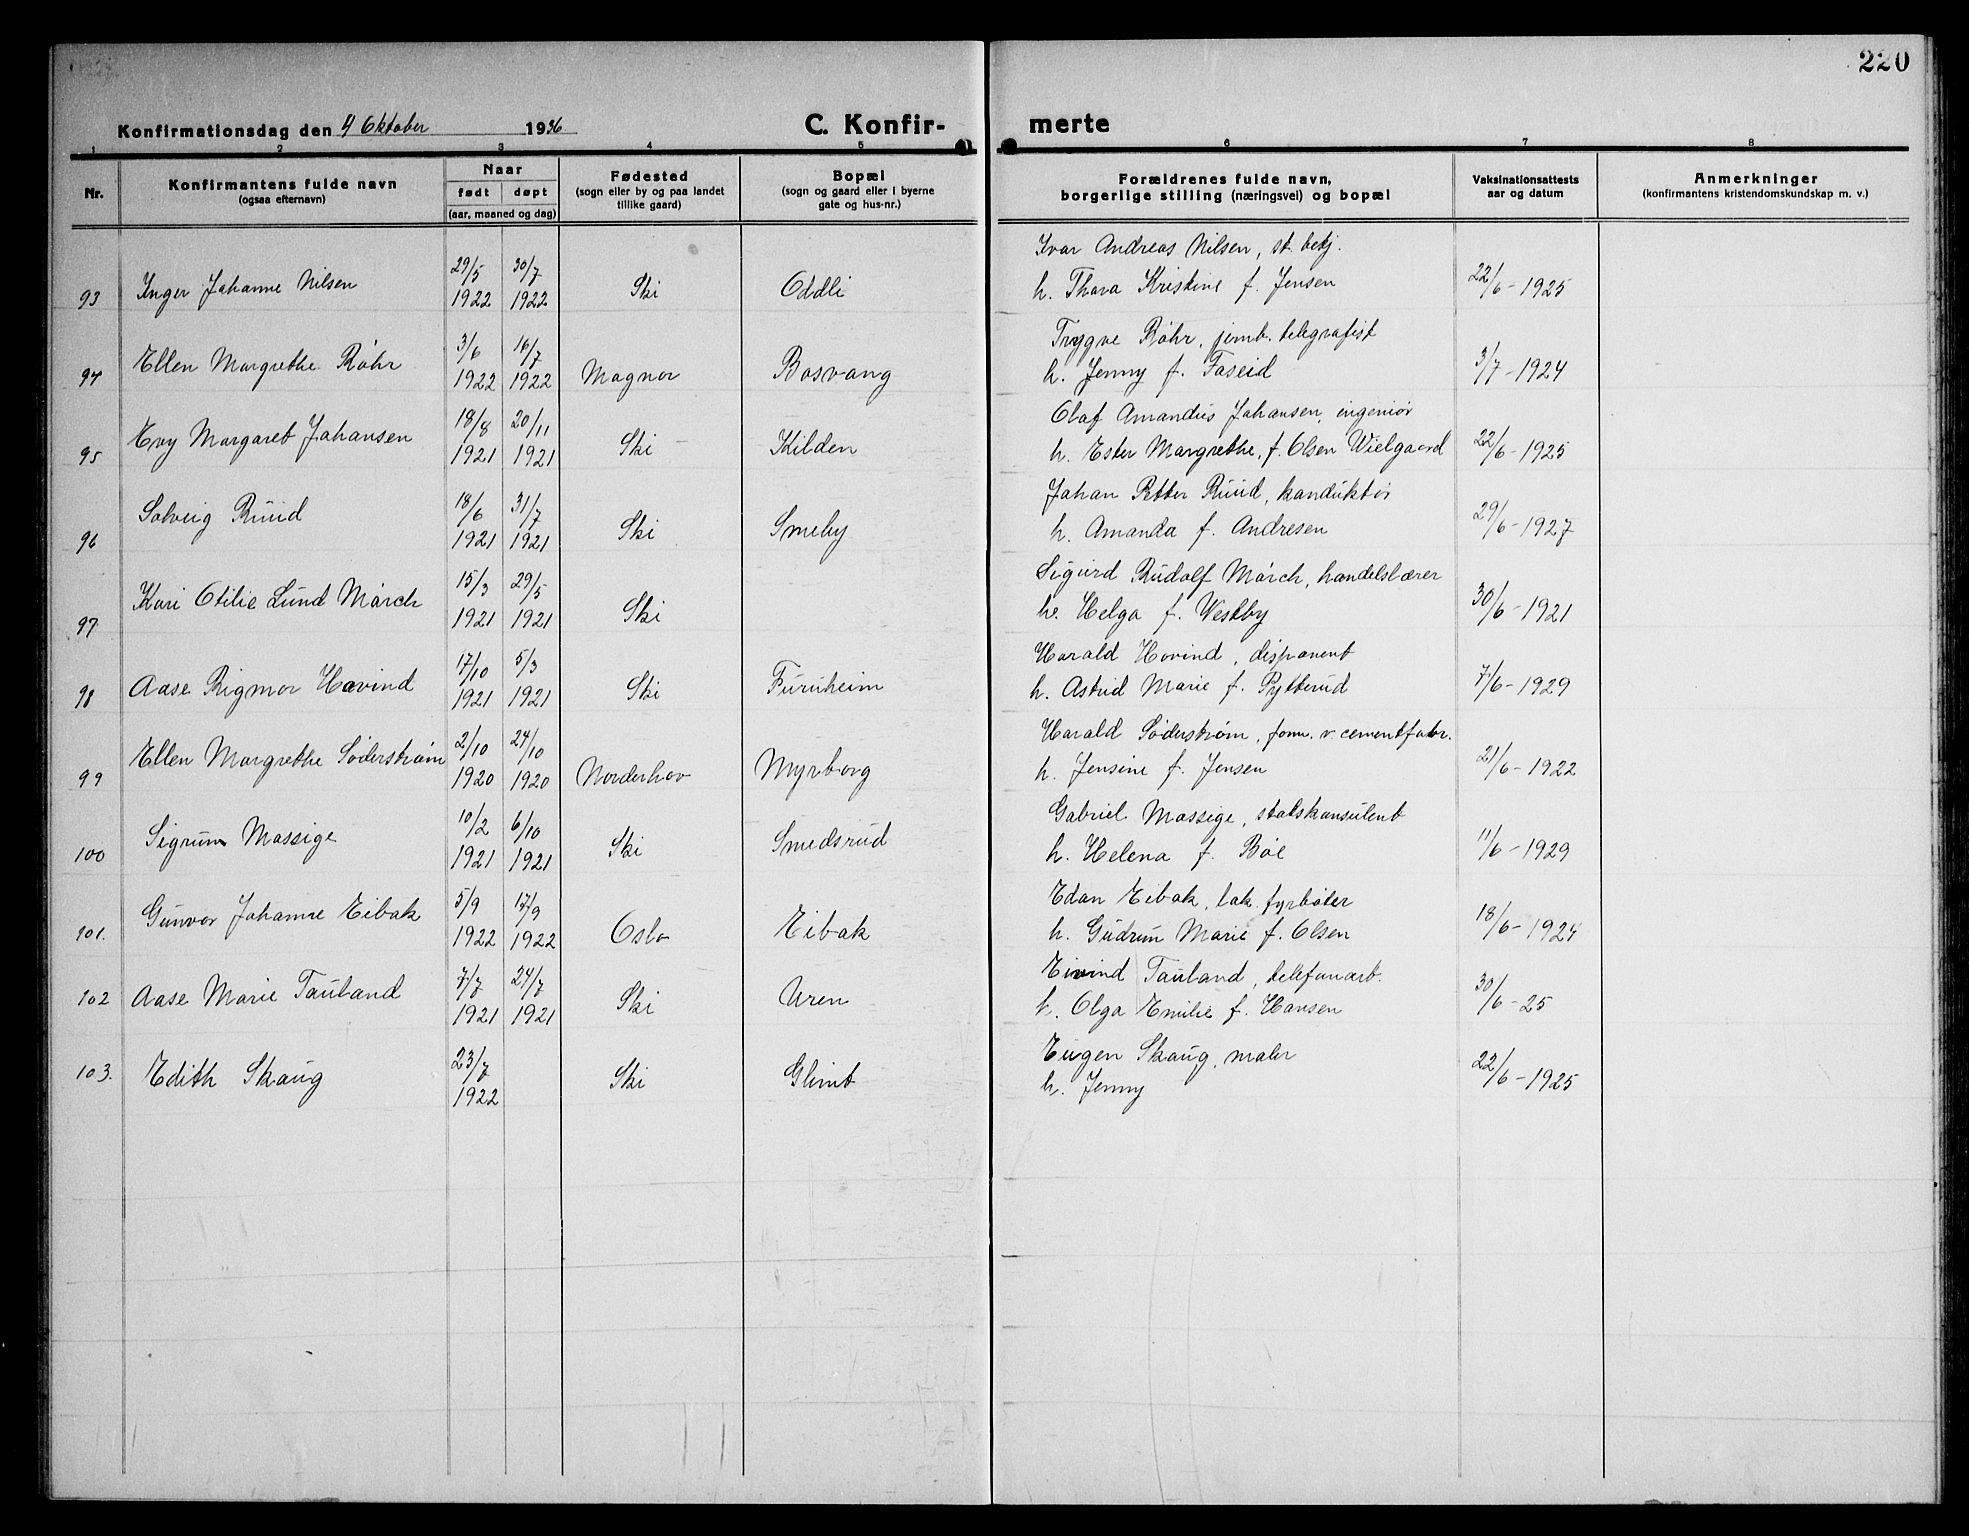 220
Konfirmationsdag den 4 Oktober 1936
C. Konfir- merte
1 2 3 4 5 6 7 8
Nr.
Konfirmantens fulde navn
(ogsaa efternavn)
Naar
født døpt
(aar, maaned og dag)
Fødested
(sogn eller by og paa landet
tillike gaard)
Bopæl
(sogn og gaard eller i byerne
gate og hus-nr.)
Forældrenes fulde navn,
borgerlige stilling (næringsvei) og bopæl
Vaksinationsattests
aar og datum
Anmerkninger
(konfirmantens kristendomskundskap m. v.)
29/5 30/7 Ivar Andreas Nilsen, st. betj.
93 Inger Johanne Nilsen 1922 1922 Ski Oddli h. Thora Kristine f. Jensen 22/6 - 1925
3/6 16/7 Trygve Røhr, jernb. telegrafist
94 Ellen Margrethe Røhr 1922 1922 Magnor Bosvang h. Jenny f. Faseid 3/7 - 1924
18/8 20/11 Olaf Amandus Johansen, ingeniør
95 Evy Margaret Johansen 1921 1921 Ski Kilden h. Ester Margrethe, f. Olsen Wielgaard 22/6 - 1925
18/6 31/7 Johan Petter Ruud, konduktør
96 Solveig Ruud 1921 1921 Ski Smeby h. Amanda f. Andresen 29/6 - 1927
15/3 29/5 Sigurd Rudolf Mørch, handelslærer
97 Kari Otilie Lund Mørch 1921 1921 Ski h. Helga f. Westby 30/6 - 1921
17/10 5/3 Harald Hovind, disponent
98 Aase Rigmor Hovind 1921 1921 Ski Furuheim h. Astrid Marie f. Rytterud 7/6 - 1929
2/10 24/10 Harald Søderstrøm, form. v. cementfabr.
99 Ellen Margrethe Søderstrøm 1920 1920 Norderhov Myrborg h. Jensine f. Jensen 21/6 - 1922
10/2 6/10 Gabriel Massige, statskonsulent
100 Sigrun Massige 1921 1921 Ski Smedsrud h. Helena f. Bøe 11/6 - 1929
5/9 17/9 Edan Eibak, lok. fyrbøter
101. Gunvor Johanne Eibak 1922 1922 Oslo Eibak h. Gudrun Marie f. Olsen 18/6 - 1924
7/7 24/7 Eivind Tauland, telefonarb.
102 Aase Marie Tauland 1921 1921 Ski Uren h. Olga Emilie f. Hansen 30/6 - 25
23/7 Eugen Skaug, maler
103. Edith Skaug 1922 Ski Glimt h. Jenny 22/6 - 1925